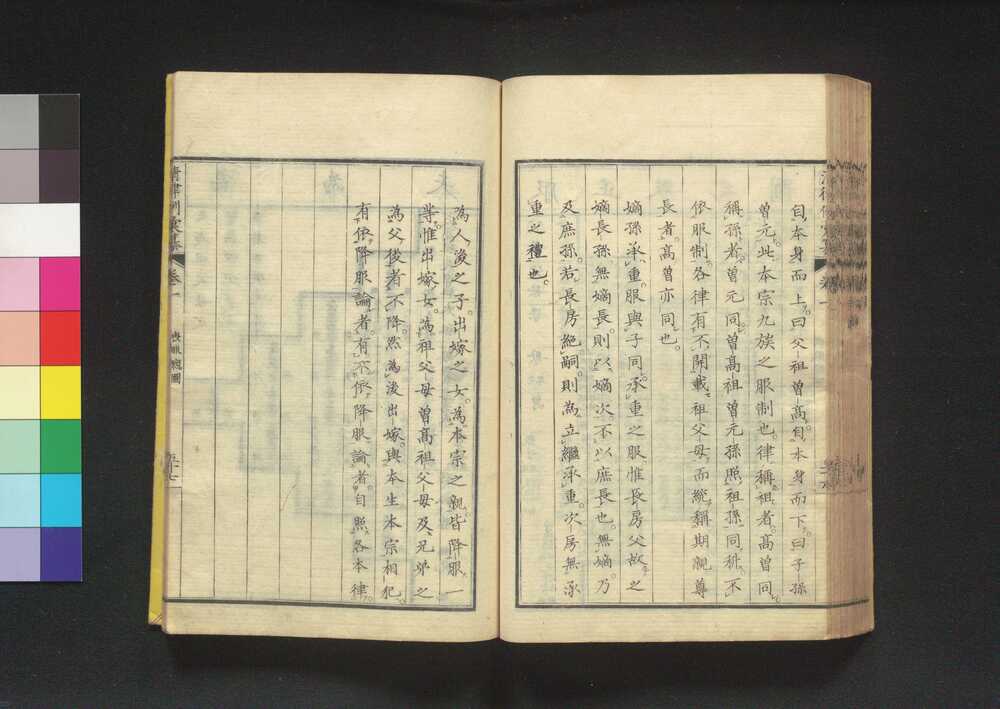 自本身而上。曰父祖曾高。自本身而下。曰子孫
曾元。此本宗九族之服制也。律稱祖者。高曾同。
稱孫者。曾元同。曾高祖曾元孫照祖孫同科。不
依服制。各律有不開載。祖父母。而統稱期親尊
長者。高曾亦同也。
嫡孫承重。服與子同。承重之服。惟長房父故。之
嫡長孫。無嫡長。則以嫡次。不以庶長也。無嫡。乃
及庶孫。若長房絶嗣。則為立繼承重。次房無承
重之禮也。
為人後之子。出嫁之女。為本宗之親。皆降服一
等。惟出嫁女。為祖父母曾高祖父母及兄弟之
為父後者。不降。然為後出嫁。與本生本宗相犯。
有依降服論者。有不依降服論者。自照各本律。
卷一
喪服總圖
五十七